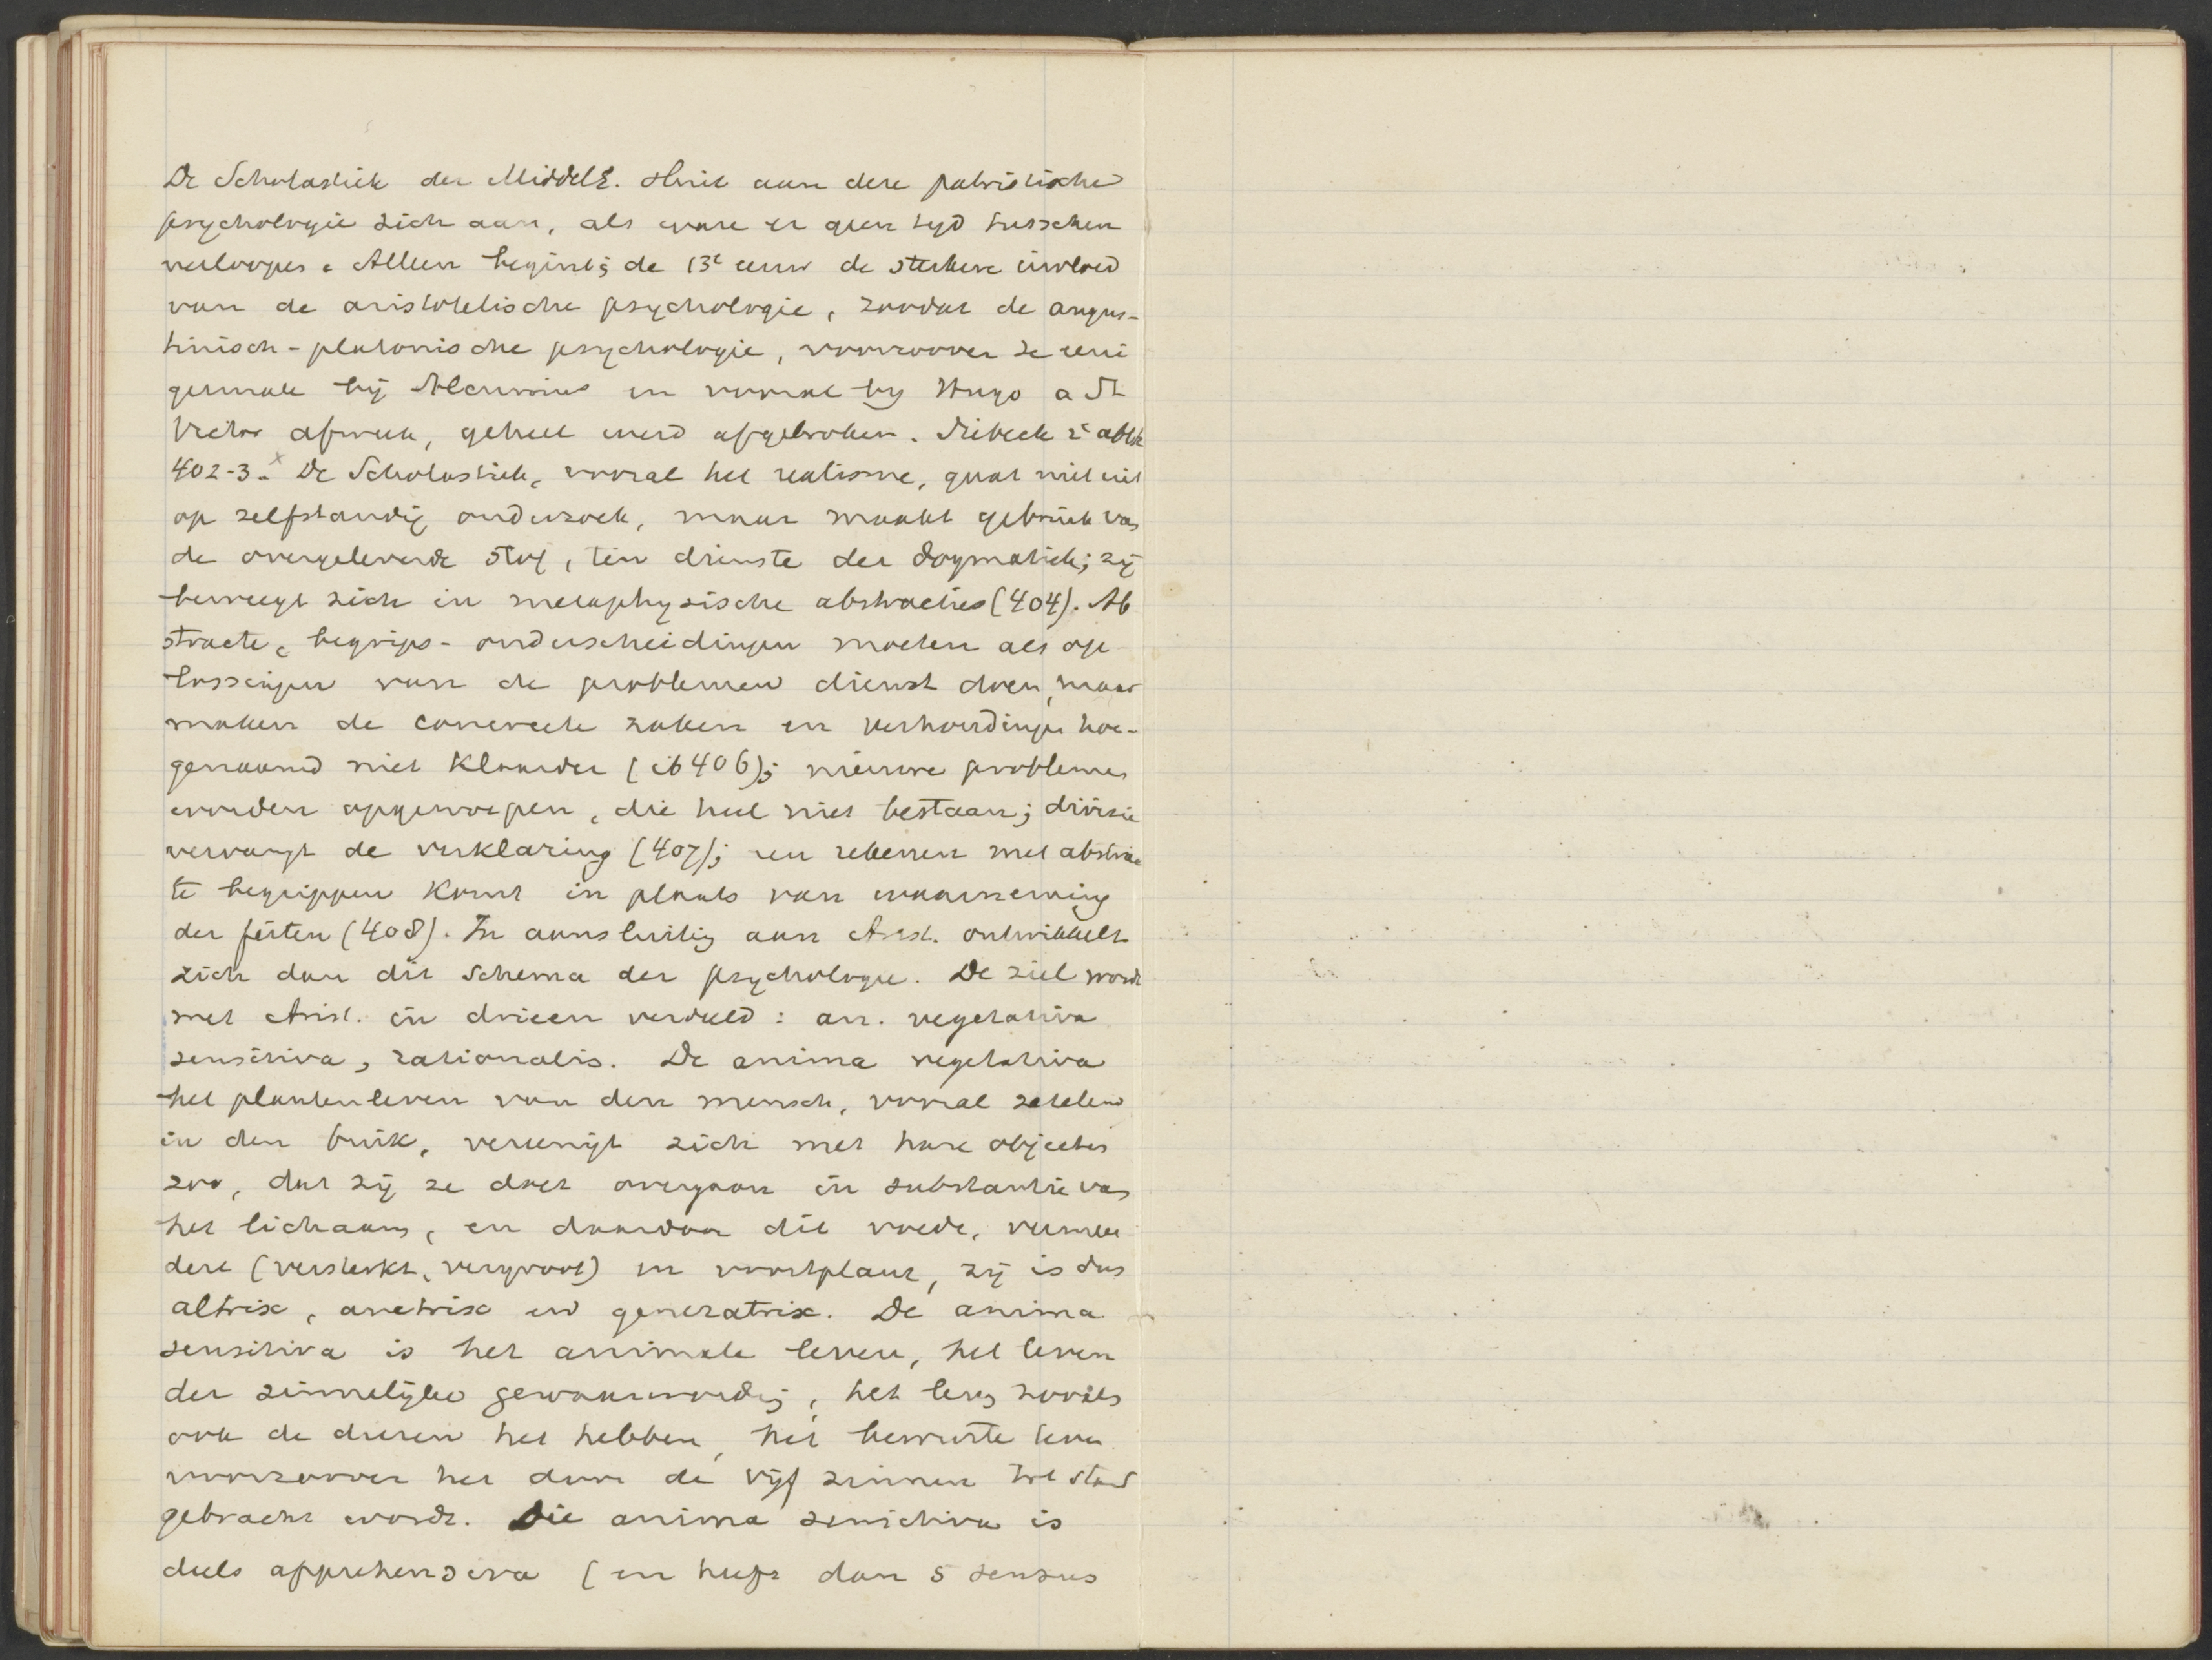 De Scholastiek der Middel. sluit aan deze patristische
psychologie zich aan, als ware er geen tijd tusschen
verloopen. Alleen begint; de 13e eeuw de sterkere invloed
van de aristotelische psychologie, zoodat de augus-
tinisch-platonische psychologie, waarvan ze eeni
germate bij Alcuinus en vooral by Hugo a St
Victor afweek, geheel werd afgebroken. Siebeck 2e abth
402-3.x De Scholastiek, vooral het realisme, gaat niet uit
op zelfstandig onderzoek, maar maakt gebruik van
de overgeleverde stof, ten dienste der dogmatiek; zij
beweegt zich in metaphysische abstracties (404). Ab
stracte, begrips-onderscheidingen moeten als op
lossingen van de problemen dienst doen, maar
maken de concreete zaken en verhoudingen hoe-
genaamd niet klaarder (ib 406); nieuwe problemen
worden opgeworpen, die heel niet bestaan; divisie
vervangt de verklaring (407); een rekenen met abstrac
te begrippen komt in plaats van waarneming
der feiten (408). In aansluiting aan Arist. ontwikkelt
zich dan dit schema der psychologie. De ziel wordt
met Arist. in drieen verdeeld: an. vegetativa
sensitiva, rationalis. De anima vegetativa
het plantenleven van den mensch, vooral zetelend
in den buik, vereenigt zich met hare objecten
zoo, dat zij ze doet overgaan in substantie van
het lichaam, en daardoor dit voedt, vermeer
dert (versterkt, vergroot) en voortplant, zij is dus
altrix, auctrix en generatrix. De anima
sensitiva is het animale leven, het leven
der zinnelijke gewaarwording, het leven zooals
ook de dieren het hebben, het bewuste leven
voorzoover het door de vijf zinnen tot stand
gebracht wordt. Die anima sensitiva is
deels apprehensiva (en heeft dan 5 sensus